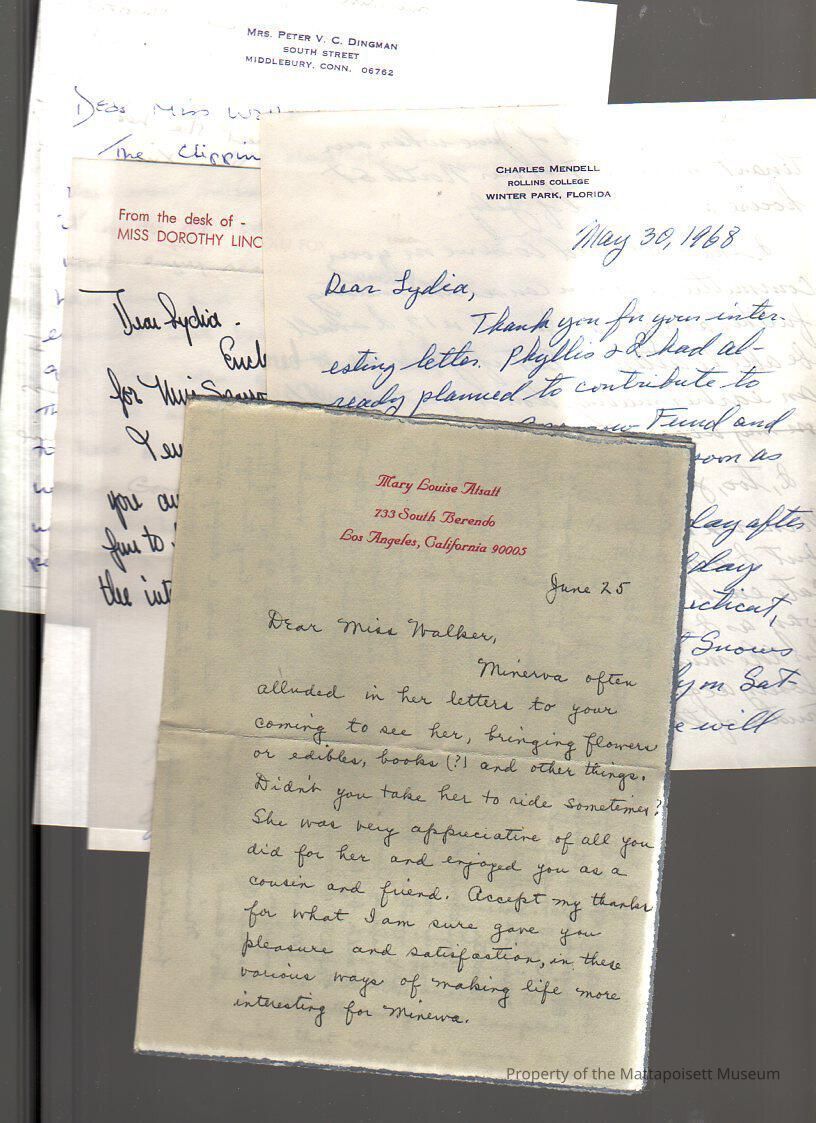 MRS. PETER V. C. DINGMAN
SOUTH STREET
MIDDLEBURY, CONN. 06762
Dear Miss
The Clippin
From the desk of -
MISS DOROTHY LINC
Dear Lydia.
Encl
for Miss
you
fun to
the int
CHARLES MENDELL
ROLLINS COLLEGE
WINTER PARK, FLORIDA
May 30, 1968
Dear Lydia,
Thank you for your inter-
esting letter. Phyllis & I had al-
ready planned to contribute to
Fund and
soon as
day after
day
Snows
on Sat-
e will
Mary Louise Atsatt
733 South Berendo
Los Angeles, California 90005
June 25
Dear Miss Walker,
Minerva often
alluded in her letters to your
coming to see her, bringing flowers
or edibles, books (?) and other things.
Didn't you take her to ride sometimes?
She was very appreciative of all you
did for her and enjoyed you as a
cousin and friend. Accept my thanks
for what I am sure gave you
pleasure and satisfaction, in these
various ways of making life more
interesting for Minerva.
Property of the Mattapoisett Museum